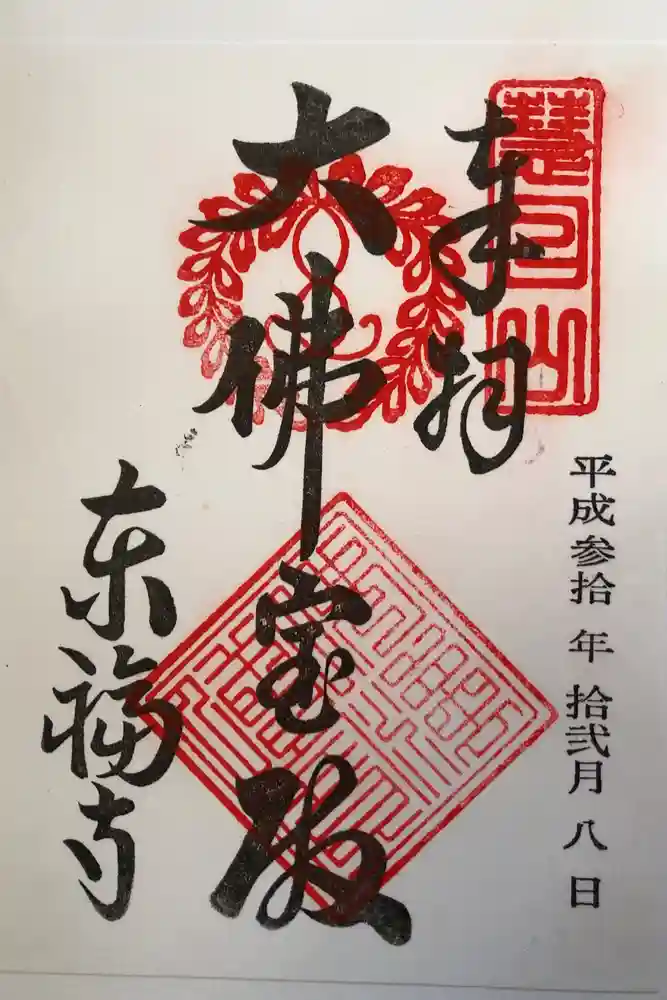 慧日山
奉拝
平成参拾年拾弐月八日
大佛宝殿
東福寺